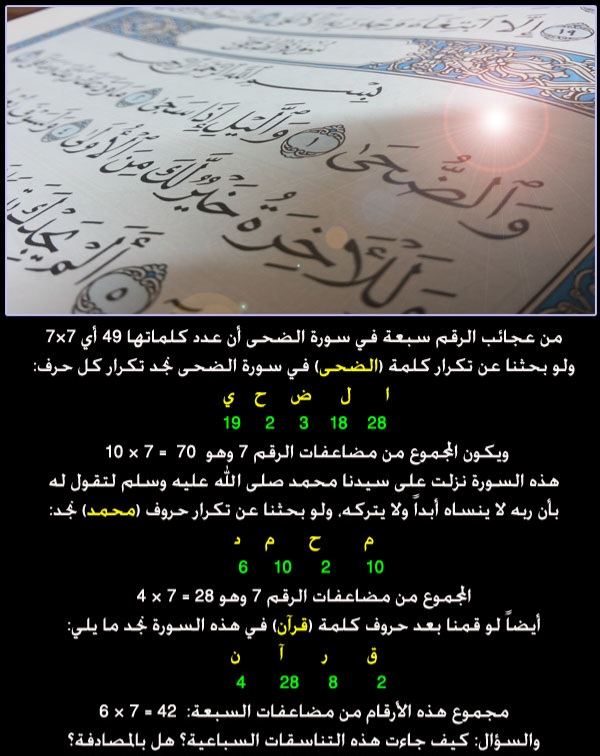 ١٩
وَالضُّحَىٰ ١ وَاللَّيْلِ إِذَا سَجَىٰ
خَيْرٌ لَّكَ مِنَ الْأُولَىٰ
٥
من عجائب الرقم سبعة في سورة الضحى أن عدد كلماتها 49 أي 7×7
ولو بحثنا عن تكرار كلمة (الضحى) في سورة الضحى نجد تكرار كل حرف:
ا ل ض ح ي
28 18 3 2 19
ويكون المجموع من مضاعفات الرقم 7 وهو 70 = 7 × 10
هذه السورة نزلت على سيدنا محمد صلى الله عليه وسلم لتقول له
بأن ربه لا ينساه أبداً ولا يتركه، ولو بحثنا عن تكرار حروف (محمد) نجد:
م ح م د
10 2 10 6
المجموع من مضاعفات الرقم 7 وهو 28 = 7 × 4
أيضاً لو قمنا بعد حروف كلمة (قرآن) في هذه السورة نجد ما يلي:
ق ر آ ن
2 8 28 4
مجموع هذه الأرقام من مضاعفات السبعة: 42 = 7 × 6
والسؤال: كيف جاءت هذه التناسقات السباعية؟ هل بالمصادفة؟